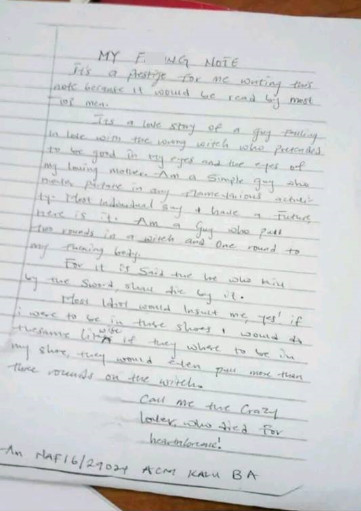 MY F. WG NOTE
It's a prestige for me writing this
note because it would be read by most
of men.
Its a love story of a guy falling
in love with the wrong witch who pretended
to be good in my eyes and the eyes of
my loving mother. Am a simple guy who
picture in any
ty. Most individual say I have a future
here is it. Am a guy who pull
two rounds in a witch and one round to
my body.
For it is said the he who kill
by the sword, shall die by it.
Most idiot would insult me, yes! if
i were to be in these shoes I would do
thesame like wise if they where to be in
my shoe, they would even pull more than
three rounds on the witch.
Call me the Crazy
lover, who died for
heartbreak!
Am NAF16/29024 ACM KALU BA